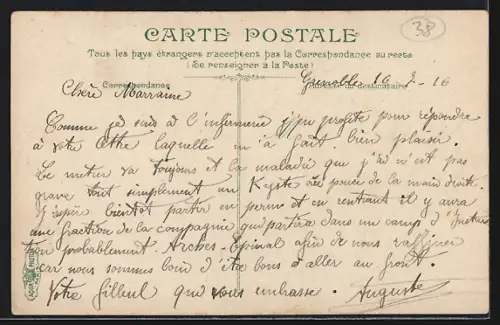 38
CARTE POSTALE
Tous les pays étrangers n'acceptent pas la Correspondance au recto
(Se renseigner à la Poste)
Correspondance
Adresse du destinataire
Grenoble 16 - 2 - 16
Chère Marraine
Comme je suis à l'infirmerie j'en profite pour répondre
à votre lettre laquelle m'a fait bien plaisir.
Le métier va toujours et la maladie que j'ai n'est pas
grave tout simplement un Kyste au pouce de la main droite.
J'espère bientôt partir en perm et en rentrant il y aura
une fraction de la compagnie qui partira dans un camp d'Instruc
tion probablement Arches - Epinal afin de nous raffiner
car nous sommes loin d'être bons d'aller au front.
Votre filleul qui vous embrasse. Auguste